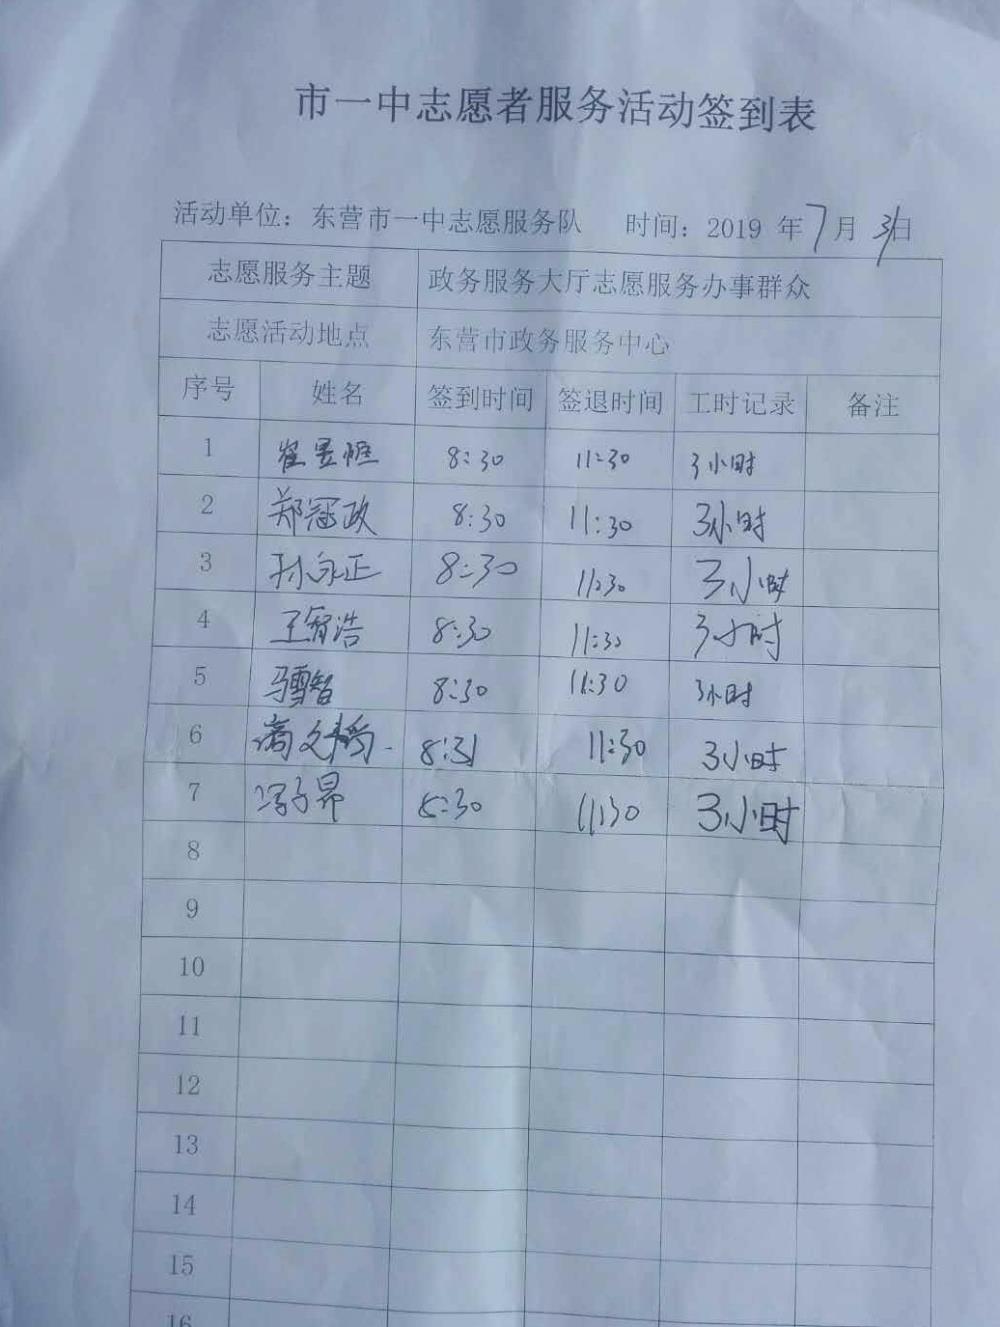 市一中志愿者服务活动签到表
活动单位：东营市一中志愿服务队 时间：2019 年 7 月 31 日
志愿服务主题 政务服务大厅志愿服务办事群众
志愿活动地点 东营市政务服务中心
序号 姓名 签到时间 签退时间 工时记录 备注
1 崔昱恒 8:30 11:30 3小时
2 郑冠政 8:30 11:30 3小时
3 孙永正 8:30 11:30 3小时
4 王智浩 8:30 11:30 3小时
5 8:30 11:30 3小时
6 8:31 11:30 3小时
7 冯子昂 8:30 11:30 3小时
8
9
10
11
12
13
14
15
16